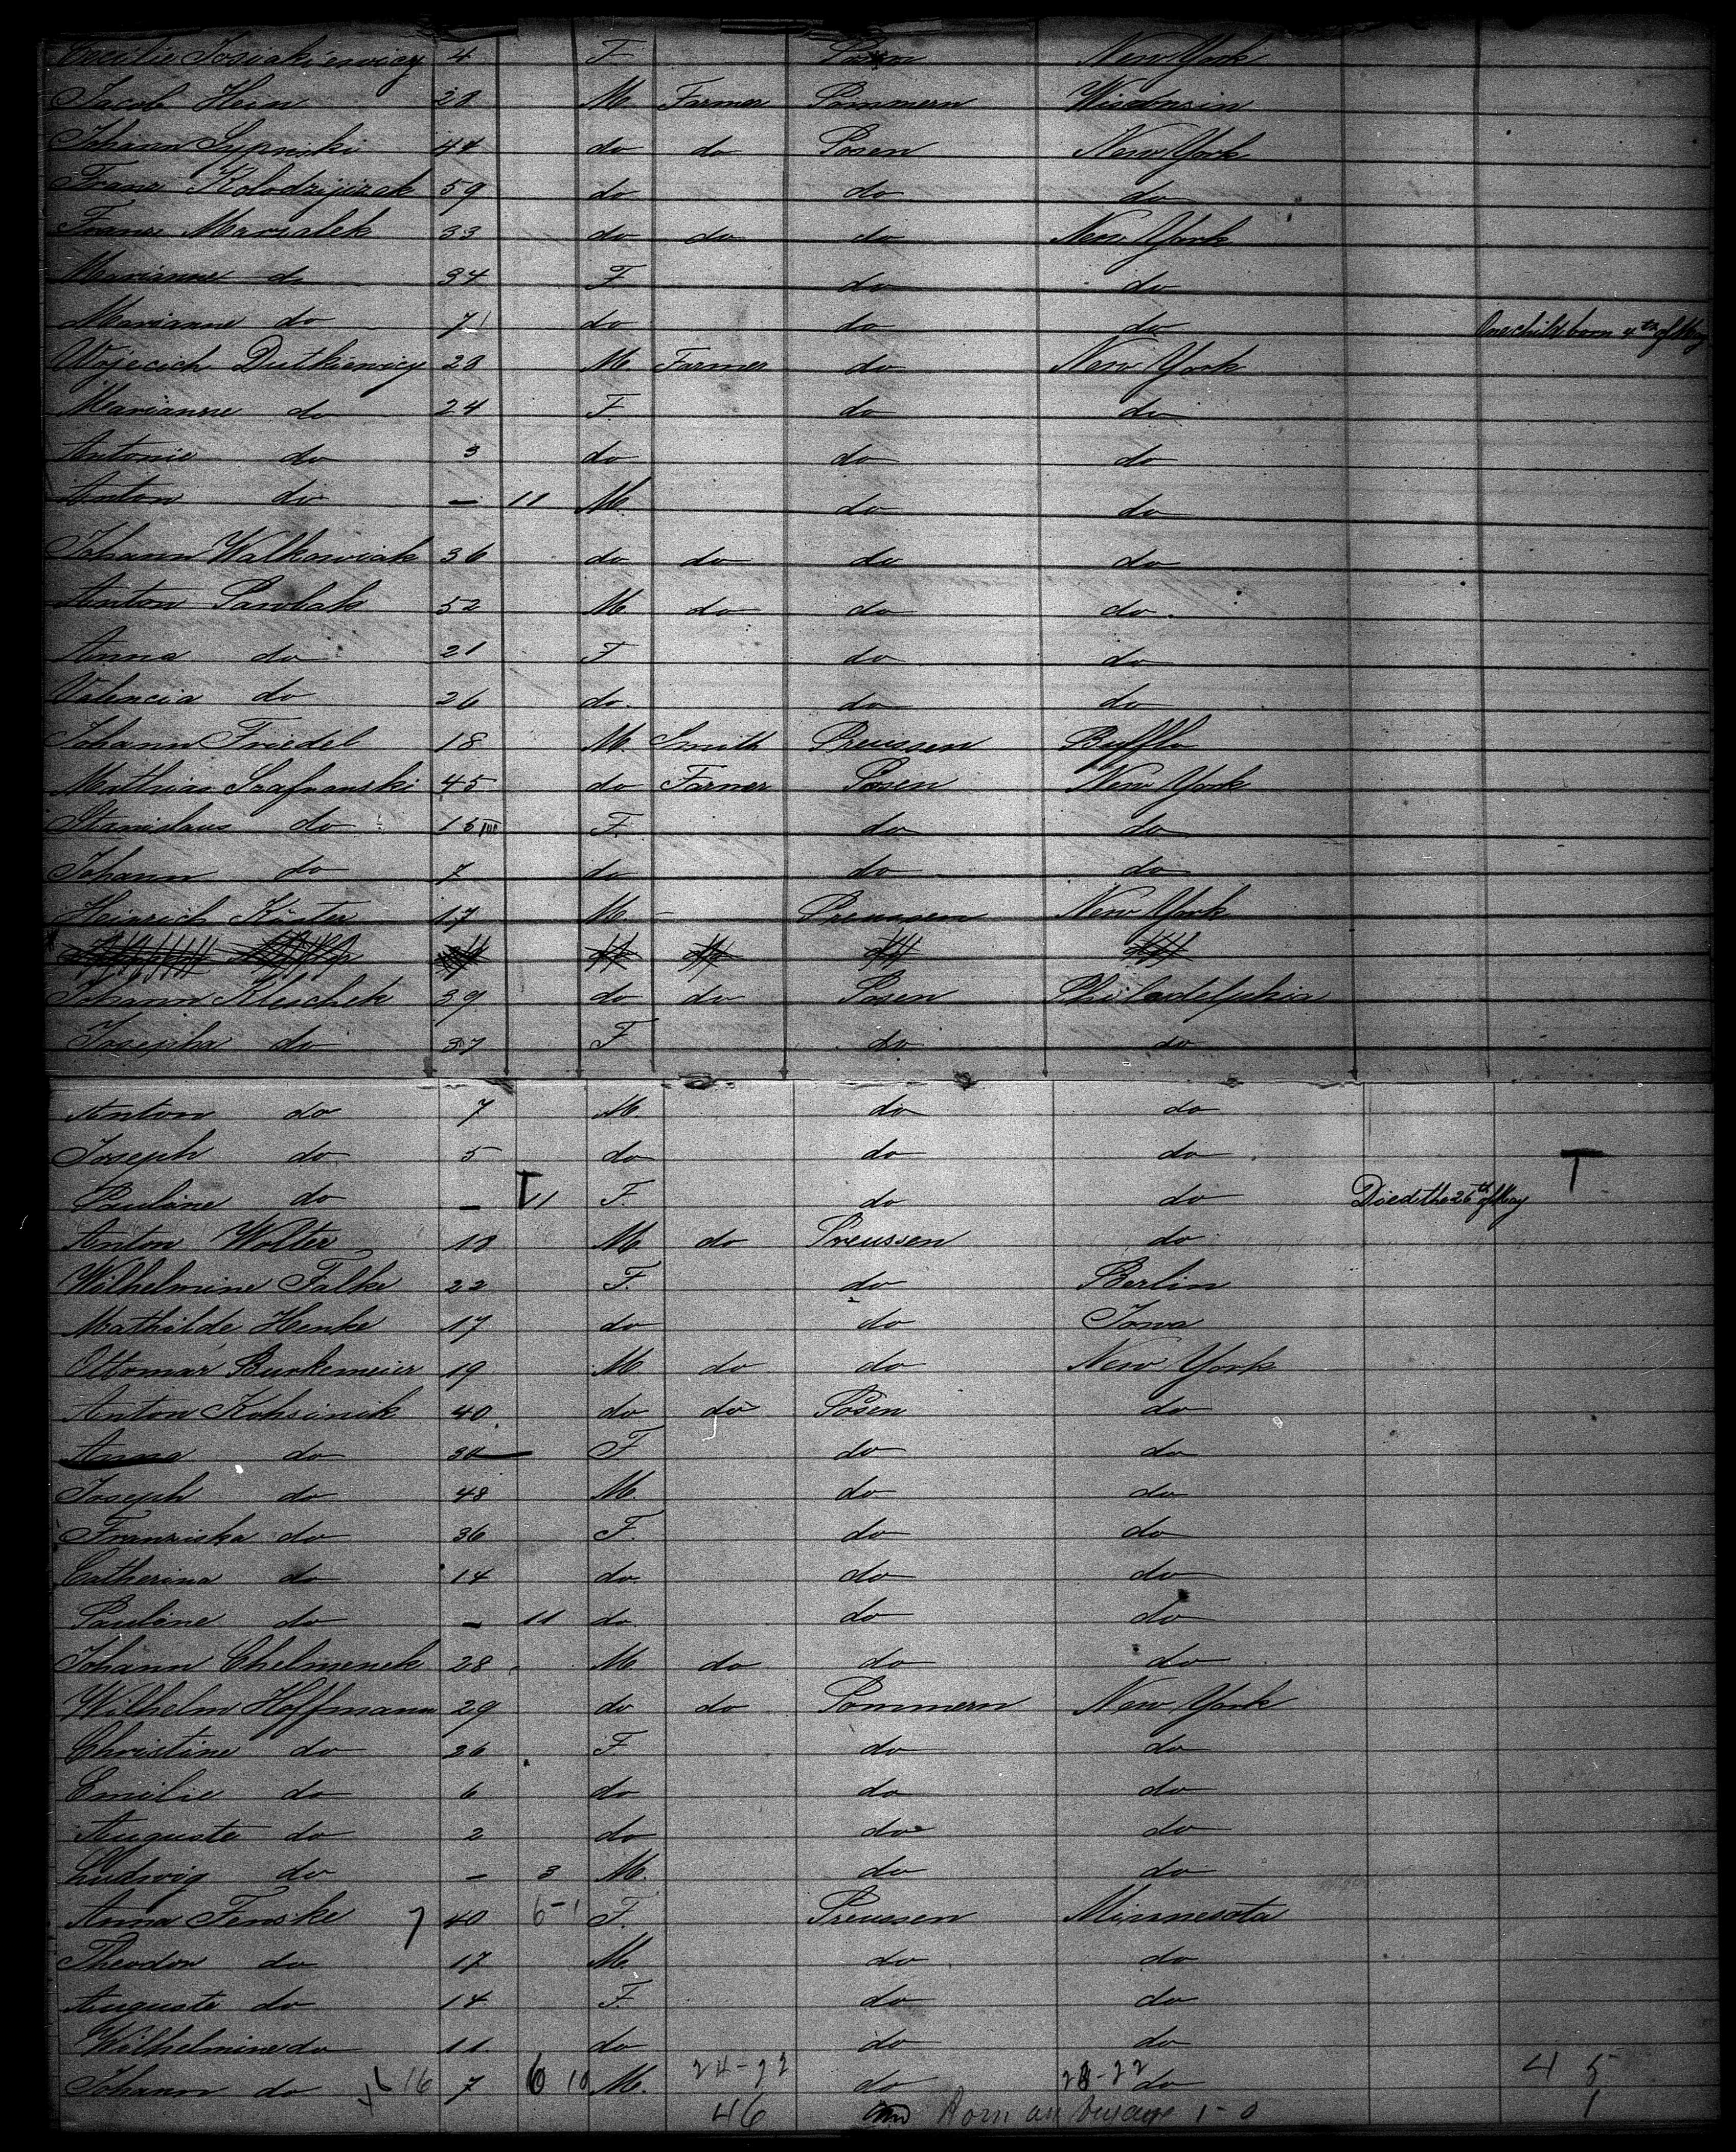 Cecilie Josiakiewicz 4 F Posen New York
Jacob Hein 28 M Farmer Pommern Wisconsin
Johann Sypnski 44 do do Posen New York
Franz Kolodzijizak 59 do do do
Franz Marsalek 33 do do do New York
Marianne do 34 F do do
Marianne do 7 do do do One child born 4th of May
Wojecich Dutkiewicz 28 M Farmer do New York
Marianne do 24 F do do
Antonie do 3 do do do
Anton do - 11 M do do
Johann Walkowiak 36 do do do do
Anton Parobak 52 M do do do
Anna do 21 F do do
Valencia do 26 do do do
Johann Friedel 18 M Smith Preussen Bufflo
Mathias Srafranski 45 do Farmer Posen New York
Stanislaus do 15 F do do
Johann do 7 do do do
Heinrich Köster 17 M - Preussen New York
Johann Kleschek 39 do do Posen Philadelphia
Josepha do 37 F do do
Anton do 7 M do do
Joseph do 5 do do do
Pauline do - 11 F do do Died the 26th of May T
Anton Wolter 18 M do Preussen do
Wilhelmine Falke 22 F do Berlin
Mathilde Henke 17 do do Iowa
Ottomar Burkemeier 19 M do do New York
Anton Kohsinik 40 do do Posen do
Anna do 30 F do do
Joseph do 48 M do do
Franziska do 36 F do do
Catherina do 14 do do do
Pauline do - 11 do do do
Johann Chelmenek 28 M do do do
Wilhelm Hoffmann 29 do do Pommern New York
Christine do 26 F do do
Emilie do 6 do do do
Auguste do 2 do do do
Ludwig do - 3 M do do
Anna Fenske 7 40 6-1 F Preussen Minnesota
Theodor do 17 M do do
Auguste do 14 F do do
Wilhelmine do 11 do do do
Johann do 16 7 6 10 M 24-22 do do 4 5
46 Born on 1-0 1